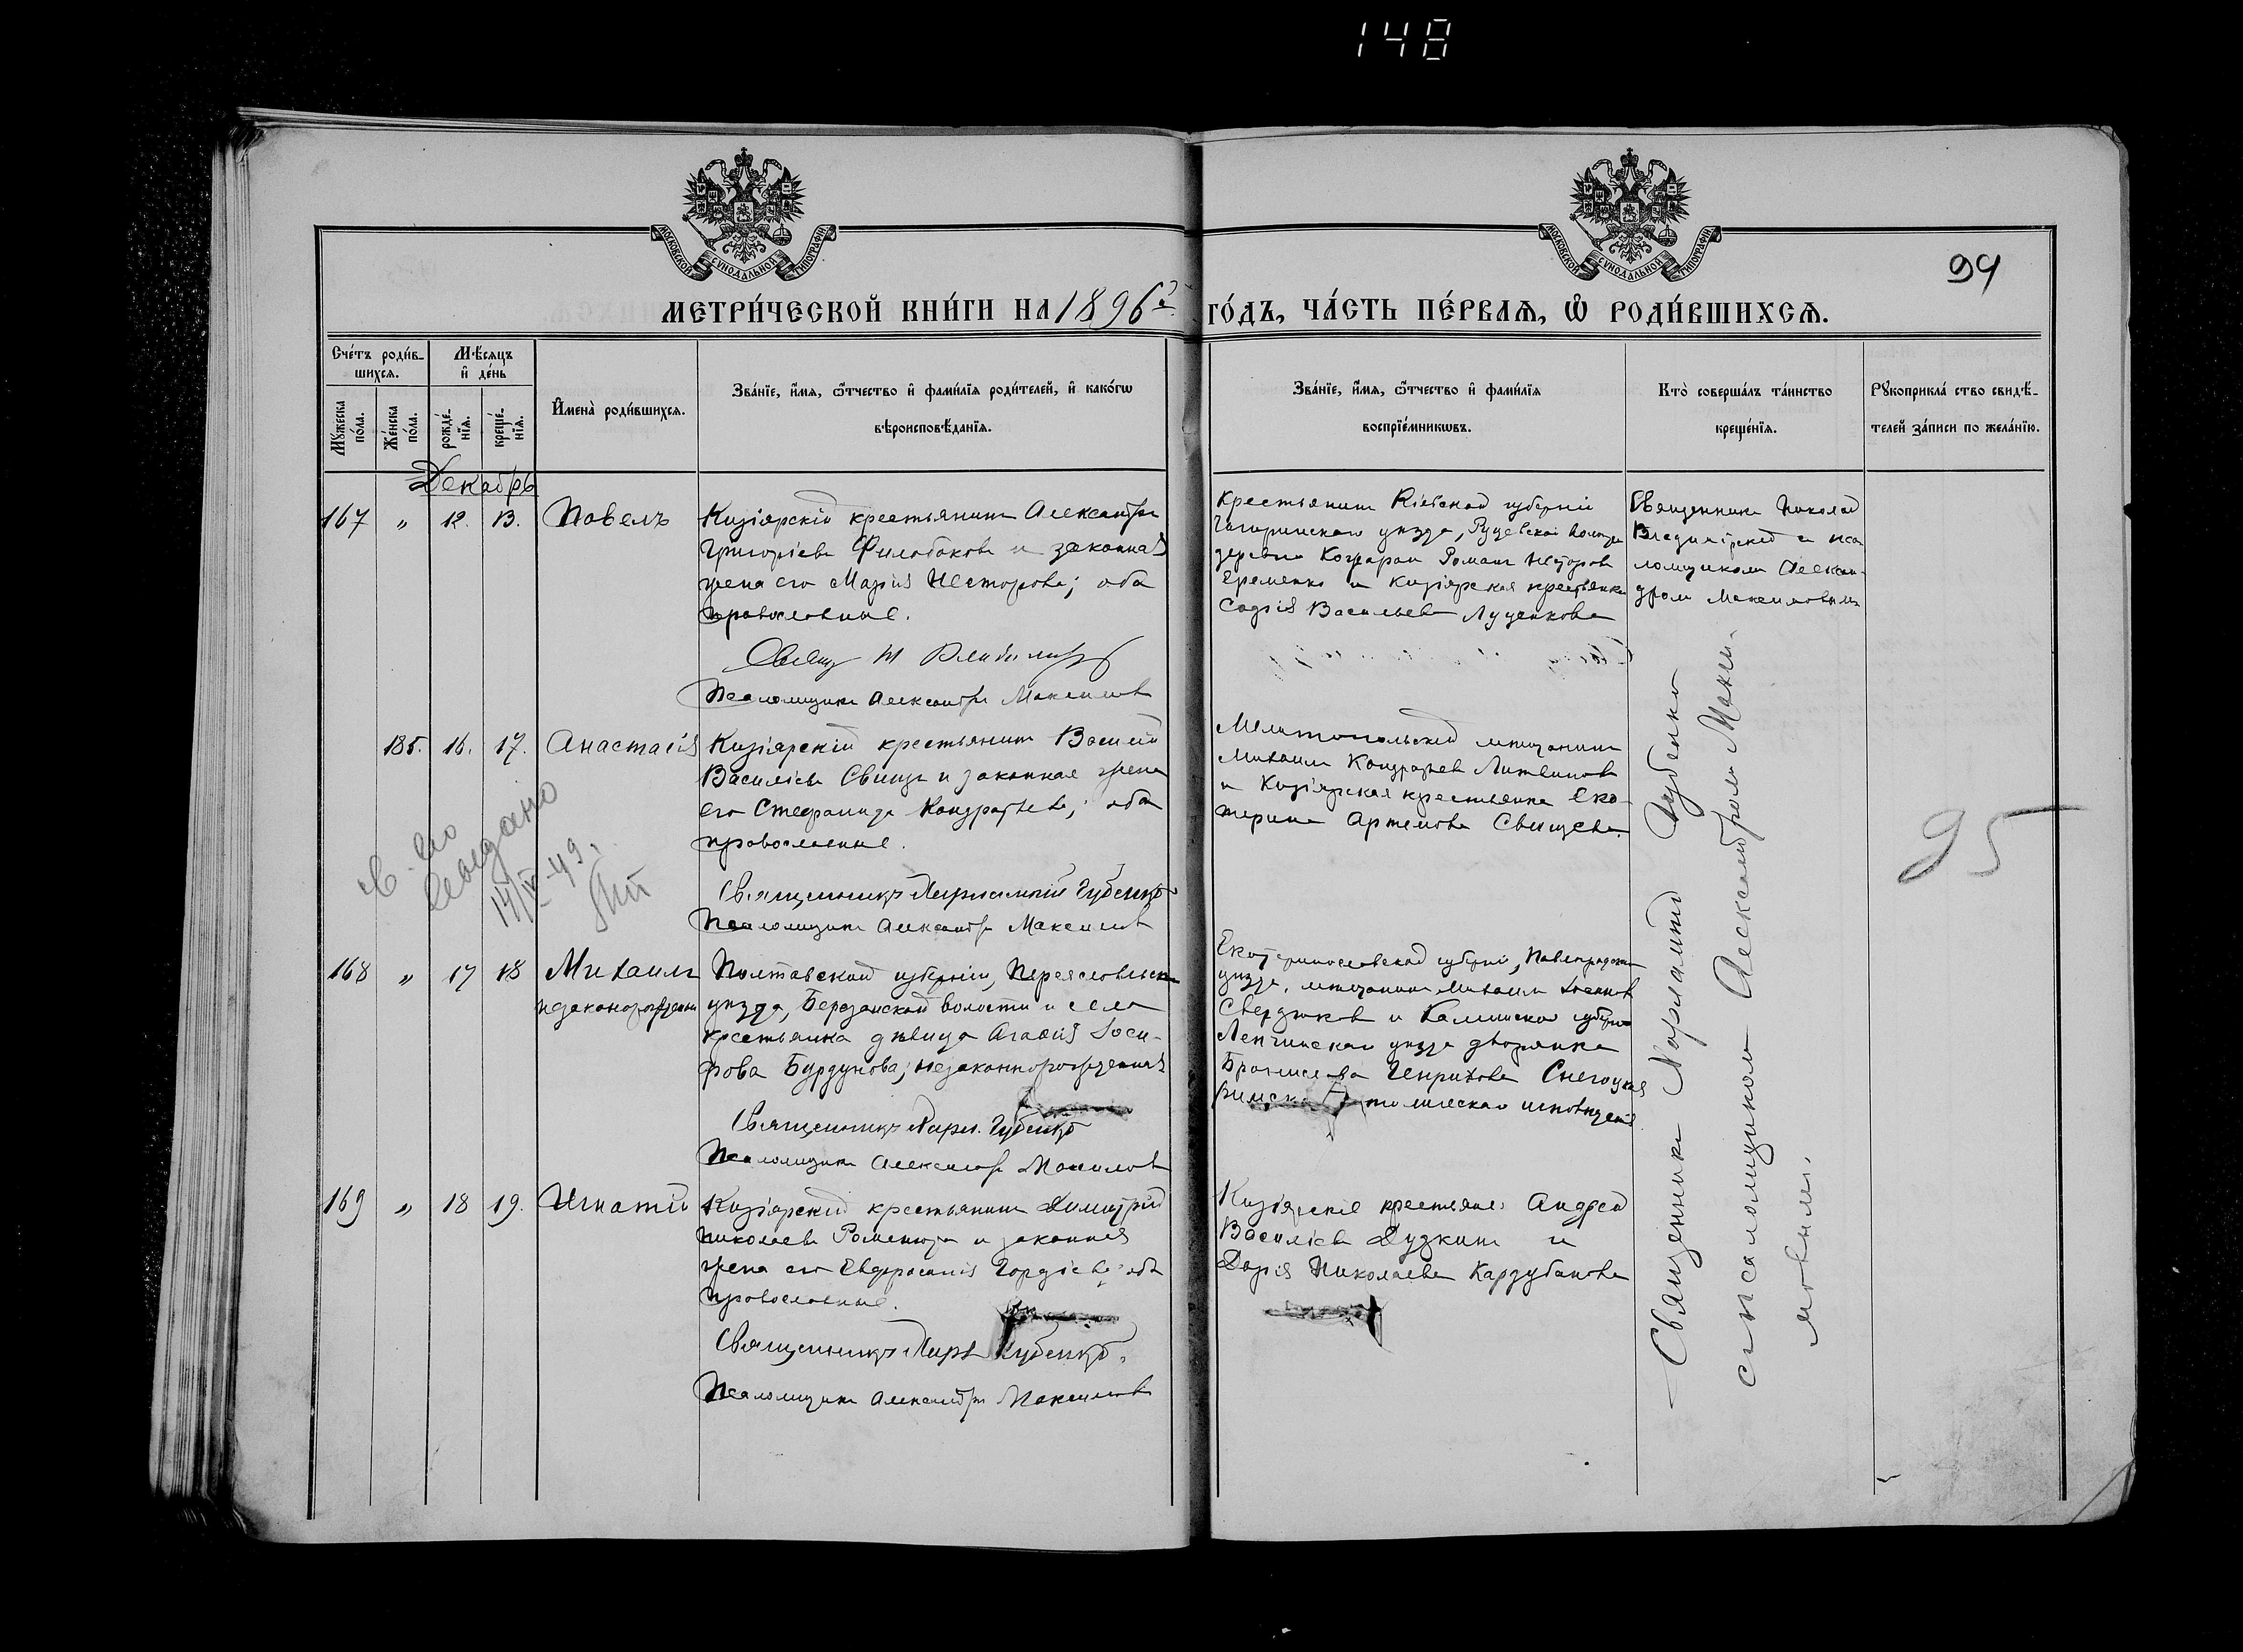 148
МОСКОВСКОЙ СѴНОДАЛЬНОЙ ТИПОГРАФІИ
МОСКОВСКОЙ СѴНОДАЛЬНОЙ ТИПОГРАФІИ
94
МЕТРИ́ЧЕСКОЙ КНИ́ГИ НА 1896 ГО́ДЪ, ЧА́СТЬ ПЕ́РВАѦ, Ѽ РОДИ́ВШИХСѦ.
Сче́тъ роди́в-
шихсѧ.
Мѣ́сѧцъ
и҆ де́нь
Мꙋ́жеска по́ла.
Же́нска по́ла.
рожде́-
нїѧ.
креще́-
нїѧ.
И҆мена̀ роди́вшихсѧ.
Зва́нїе, и҆́мѧ, ѻ҆́тчество и҆ фами́лїѧ роди́телей, и҆ како́гѡ
вѣроисповѣ́данїѧ.
Зва́нїе, и҆́мѧ, ѻ҆́тчество и҆ фами́лїѧ
воспрїе́мникѡвъ.
Кто̀ соверша́лъ та́инство
креще́нїѧ.
Рꙋкоприкла́ ство свидѣ́-
телей за́писи по жела́нїю.
Декабрь
167 " 12. 13. Павелъ
Кизіярскій крестьянинъ Александръ
Григоріевъ Филобоковъ и законная
жена его Марія Несторова; оба
православные.
Свящ Н Владимір
Псаломщикъ Александръ Максимовъ
Крестьянинъ Кіевской губерніи
Чигиринскаго уѣзда, волости
деревни Романъ Несторовъ
Еременко и Кизіярская крестьянка
Софія Васильева Луценкова
Священникъ Николай
Владимірскій и пса-
ломщикомъ Алексан-
дромъ Максимовымъ
185. 16. 17. Анастасія
Кизіярскій крестьянинъ Василій
Василіевъ Свищъ и законная жена
его Стефанида Кондратьева; оба
православные.
Священникъ Парѳеній Губенко
Псаломщикъ Александръ Максимовъ
Мелитопольскій мѣщанинъ
Михаилъ Кондратьевъ Литвиновъ
и Кизіярская крестьянка Ека-
терина Артемова Свищева.
95
168 " 17 18 Михаилъ
незаконорожденный
Полтавской губерніи, Переяславльскаго
уѣзда, Березанской волости и села
крестьянка дѣвица Агафія Іоси-
фова Бурдунова; незаконнорожденная
Священникъ Парѳ. Губенко
Псаломщикъ Александръ Максимовъ
Екатеринославской губерніи, Павлоградскаго
уѣзда, мѣщанинъ Михаилъ Іоанновъ
Свердликовъ и губерніи
уѣзда дворянка
Бронислава Генрихова Снегоцкая
римско католическаго исповѣданія
169 " 18 19. Игнатій
Кизіярскій крестьянинъ Димитрій
Николаевъ и законная
жена его Евфросинія Гордіева; оба
православные.
Священникъ Парѳ Губенко.
Псаломщикъ Александръ Максимовъ
Кизіярскіе крестьяне: Андрей
Василіевъ Дудкинъ и
Дарія Николаева Кардубанова
Священникъ Парѳеній Губенко
съ псаломщикомъ Александромъ Макси-
мовымъ.